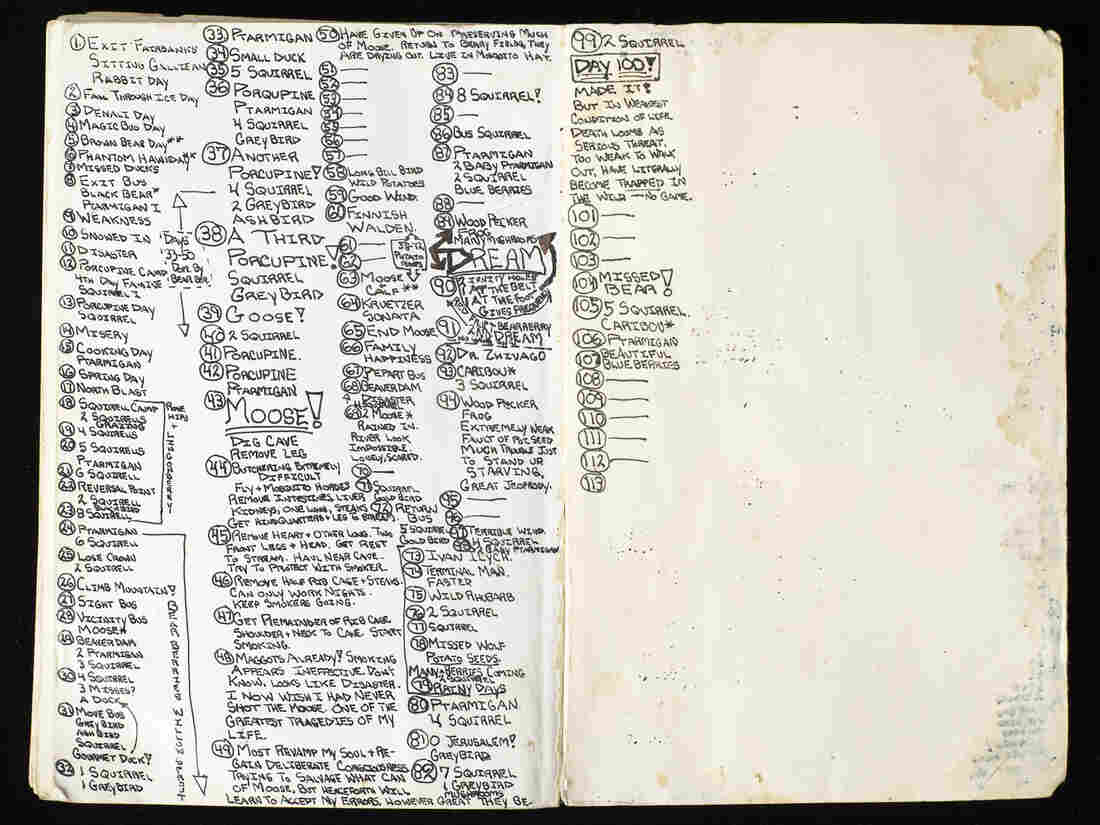 ① EXIT FAIRBANKS
SITTING GALLIEAN
RABBIT DAY
② FALL THROUGH ICE DAY
③ DENALI DAY
④ MAGIC BUS DAY
⑤ BROWN BEAR DAY**
⑥ PHANTOM HAWKDAY*
⑦ MISSED DUCKS
⑧ EXIT BUS
BLACK BEAR*
PTARMIGAN 1
⑨ WEAKNESS
⑩ SNOWED IN
⑪ DISASTER
⑫ PORCUPINE CAMP
4TH DAY FAMINE
SQUIRREL 1
⑬ PORCUPINE DAY
SQUIRREL
⑭ MISERY
⑮ COOKING DAY
PTARMIGAN
⑯ SPRING DAY
⑰ NORTH BLAST
⑱ SQUIRREL CAMP
2 SQUIRRELS
GRAZING
⑲ 4 SQUIRRELS
⑳ 5 SQUIRRELS
PTARMIGAN
㉑ 6 SQUIRRELL
㉒ REVERSAL POINT
2 SQUIRRELL
㉓ 3 SQUIRRELL
㉔ PTARMIGAN
6 SQUIRRELL
㉕ LOSE CROWN
2 SQUIRRELL
㉖ CLIMB MOUNTAIN!
㉗ SIGHT BUS
㉘ VICINITY BUS
MOOSE*
㉙ BEAVER DAM
2 PTARMIGAN
3 SQUIRREL
㉚ 4 SQUIRREL
3 MISSES?
A DUCK
㉛ MOVE BUS
GREY BIRD
ASH BIRD
SQUIRREL
GOURMET DUCK!
㉜ 1 SQUIRREL
1 GREYBIRD
ROSE HIPS + LINGONBERRY
DAYS
33-50
㉝ PTARMIGAN
㉞ SMALL DUCK
㉟ 5 SQUIRREL
㊱ PORQUPINE
PTARMIGAN
4 SQUIRREL
GREY BIRD
㊲ ANOTHER
PORCUPINE!
4 SQUIRREL
2 GREYBIRD
ASH BIRD
㊳ A THIRD
PORCUPINE!
SQUIRREL
GREY BIRD
㊴ GOOSE!
㊵ 2 SQUIRREL
㊶ PORCUPINE.
㊷ PORCUPINE
PTARMIGAN
㊸ MOOSE!
DIG CAVE
REMOVE LEG
㊹ BUTCHERING EXTREMELY
DIFFICULT
FLY + MOSQUITO HORDES
REMOVE INTESTINES, LIVER
KIDNEYS, ONE LUNG, STEAKS
GET HINDQUARTERS + LEG TO STREAM.
㊺ REMOVE HEART + OTHER LUNG. TWO
FRONT LEGS + HEAD. GET REST
TO STREAM. HAUL NEAR CAVE.
TRY TO PROTECT WITH SMOKER.
㊻ REMOVE HALF RIB CAGE + STEAKS.
CAN ONLY WORK NIGHTS.
KEEP SMOKERS GOING.
㊼ GET REMAINDER OF RIB CAGE
SHOULDER + NECK TO CAVE. START
SMOKING.
㊽ MAGGOTS ALREADY! SMOKING
APPEARS INEFFECTIVE. DON'T
KNOW, LOOKS LIKE DISASTER.
I NOW WISH I HAD NEVER
SHOT THE MOOSE. ONE OF THE
GREATEST TRAGEDIES OF MY
LIFE.
㊾ MOST REVAMP MY SOUL + RE-
GAIN DELIBERATE CONSCIOUSNESS
TRYING TO SALVAGE WHAT CAN
OF MOOSE, BUT HENCEFORTH WILL
LEARN TO ACCEPT MY ERRORS, HOWEVER GREAT THEY BE.
㊿ HAVE GIVEN UP ON PRESERVING MUCH
OF MOOSE. RETURN TO BERRY FIELDS, THEY
ARE DRYING OUT. LIVE IN MOSQUITO HAT.
51 —
52 —
53 —
54 —
55 —
56 —
57 —
58 LONG BILL BIRD
WILD POTATOES
59 GOOD WIND.
60 FINNISH
WALDEN.
61 —
62 —
63 MOOSE
CALF**
64 KRUETZER
SONATA
65 END MOOSE
66 FAMILY
HAPPINESS
67 DEPART BUS
68 BEAVER DAM
+ DISASTER
69 2 MOOSE*
RAINED IN.
RIVER LOOK
IMPOSSIBLE.
LONELY, SCARED.
70 —
71 SQUIRREL
GOLD BIRD
72 RETURN
BUS
5 SQUIRREL
GOLD BIRD
73 IVAN ILYCH.
74 TERMINAL MAN.
FASTER
75 WILD RHUBARB
76 2 SQUIRREL
77 SQUIRREL
78 MISSED WOLF
POTATO SEEDS.
MANY BERRIES COMING
2 SQUIRREL
79 RAINY DAYS
80 PTARMIGAN
4 SQUIRREL
81 O JERUSALEM!
GREYBIRD
82 7 SQUIRREL
1 GREYBIRD
MUSHROOMS
83 —
84 8 SQUIRREL!
85 —
86 BUS SQUIRREL
87 PTARMIGAN
2 BABY PTARMIGAN
2 SQUIRREL
BLUE BERRIES
88 —
89 WOOD PECKER
FROG
MANY MUSHROOMS
DREAM
90
AT THE BELT
AT THE FOOT
GIVES FREQUENCY
91
DREAM
92 DR. ZHIVAGO
93 CARIBOU*
3 SQUIRREL
94 WOOD PECKER
FROG
EXTREMELY WEAK
FAULT OF POT. SEED
MUCH TROUBLE JUST
TO STAND UP
STARVING,
GREAT JEOPARDY.
95 —
96 —
97 TERRIBLE WIND.
98 4 SQUIRREL
2 BABY PTARMIGAN
99 2 SQUIRREL
DAY 100!
MADE IT!
BUT IN WEAKEST
CONDITION OF LIFE
DEATH LOOMS AS
SERIOUS THREAT.
TOO WEAK TO WALK
OUT, HAVE LITERALLY
BECOME TRAPPED IN
THE WILD — NO GAME.
101 —
102 —
103 —
104 MISSED
BEAR!
105 5 SQUIRREL.
CARIBOU*
106 PTARMIGAN
107 BEAUTIFUL
BLUE BERRIES
108 —
109 —
110 —
111 —
112 —
113